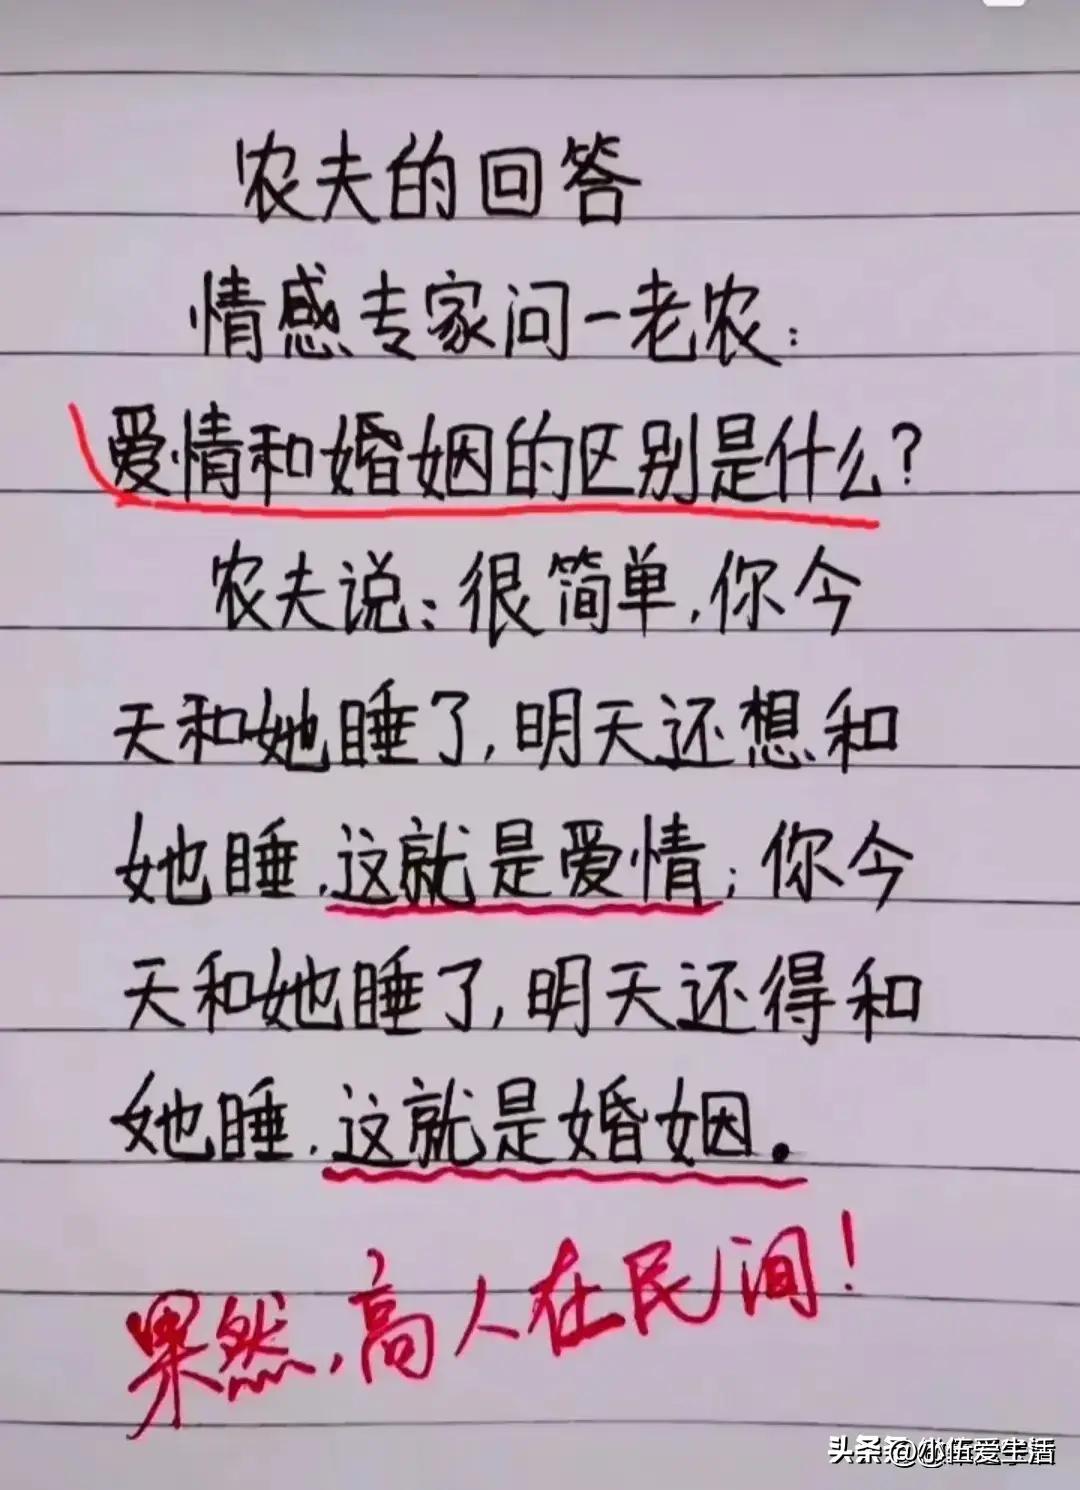 农夫的回答
情感专家问一老农：
爱情和婚姻的区别是什么？
农夫说：很简单，你今
天和她睡了，明天还想和
她睡，这就是爱情；你今
天和她睡了，明天还得和
她睡，这就是婚姻。
果然，高人在民间！
头条 @小伍爱生活